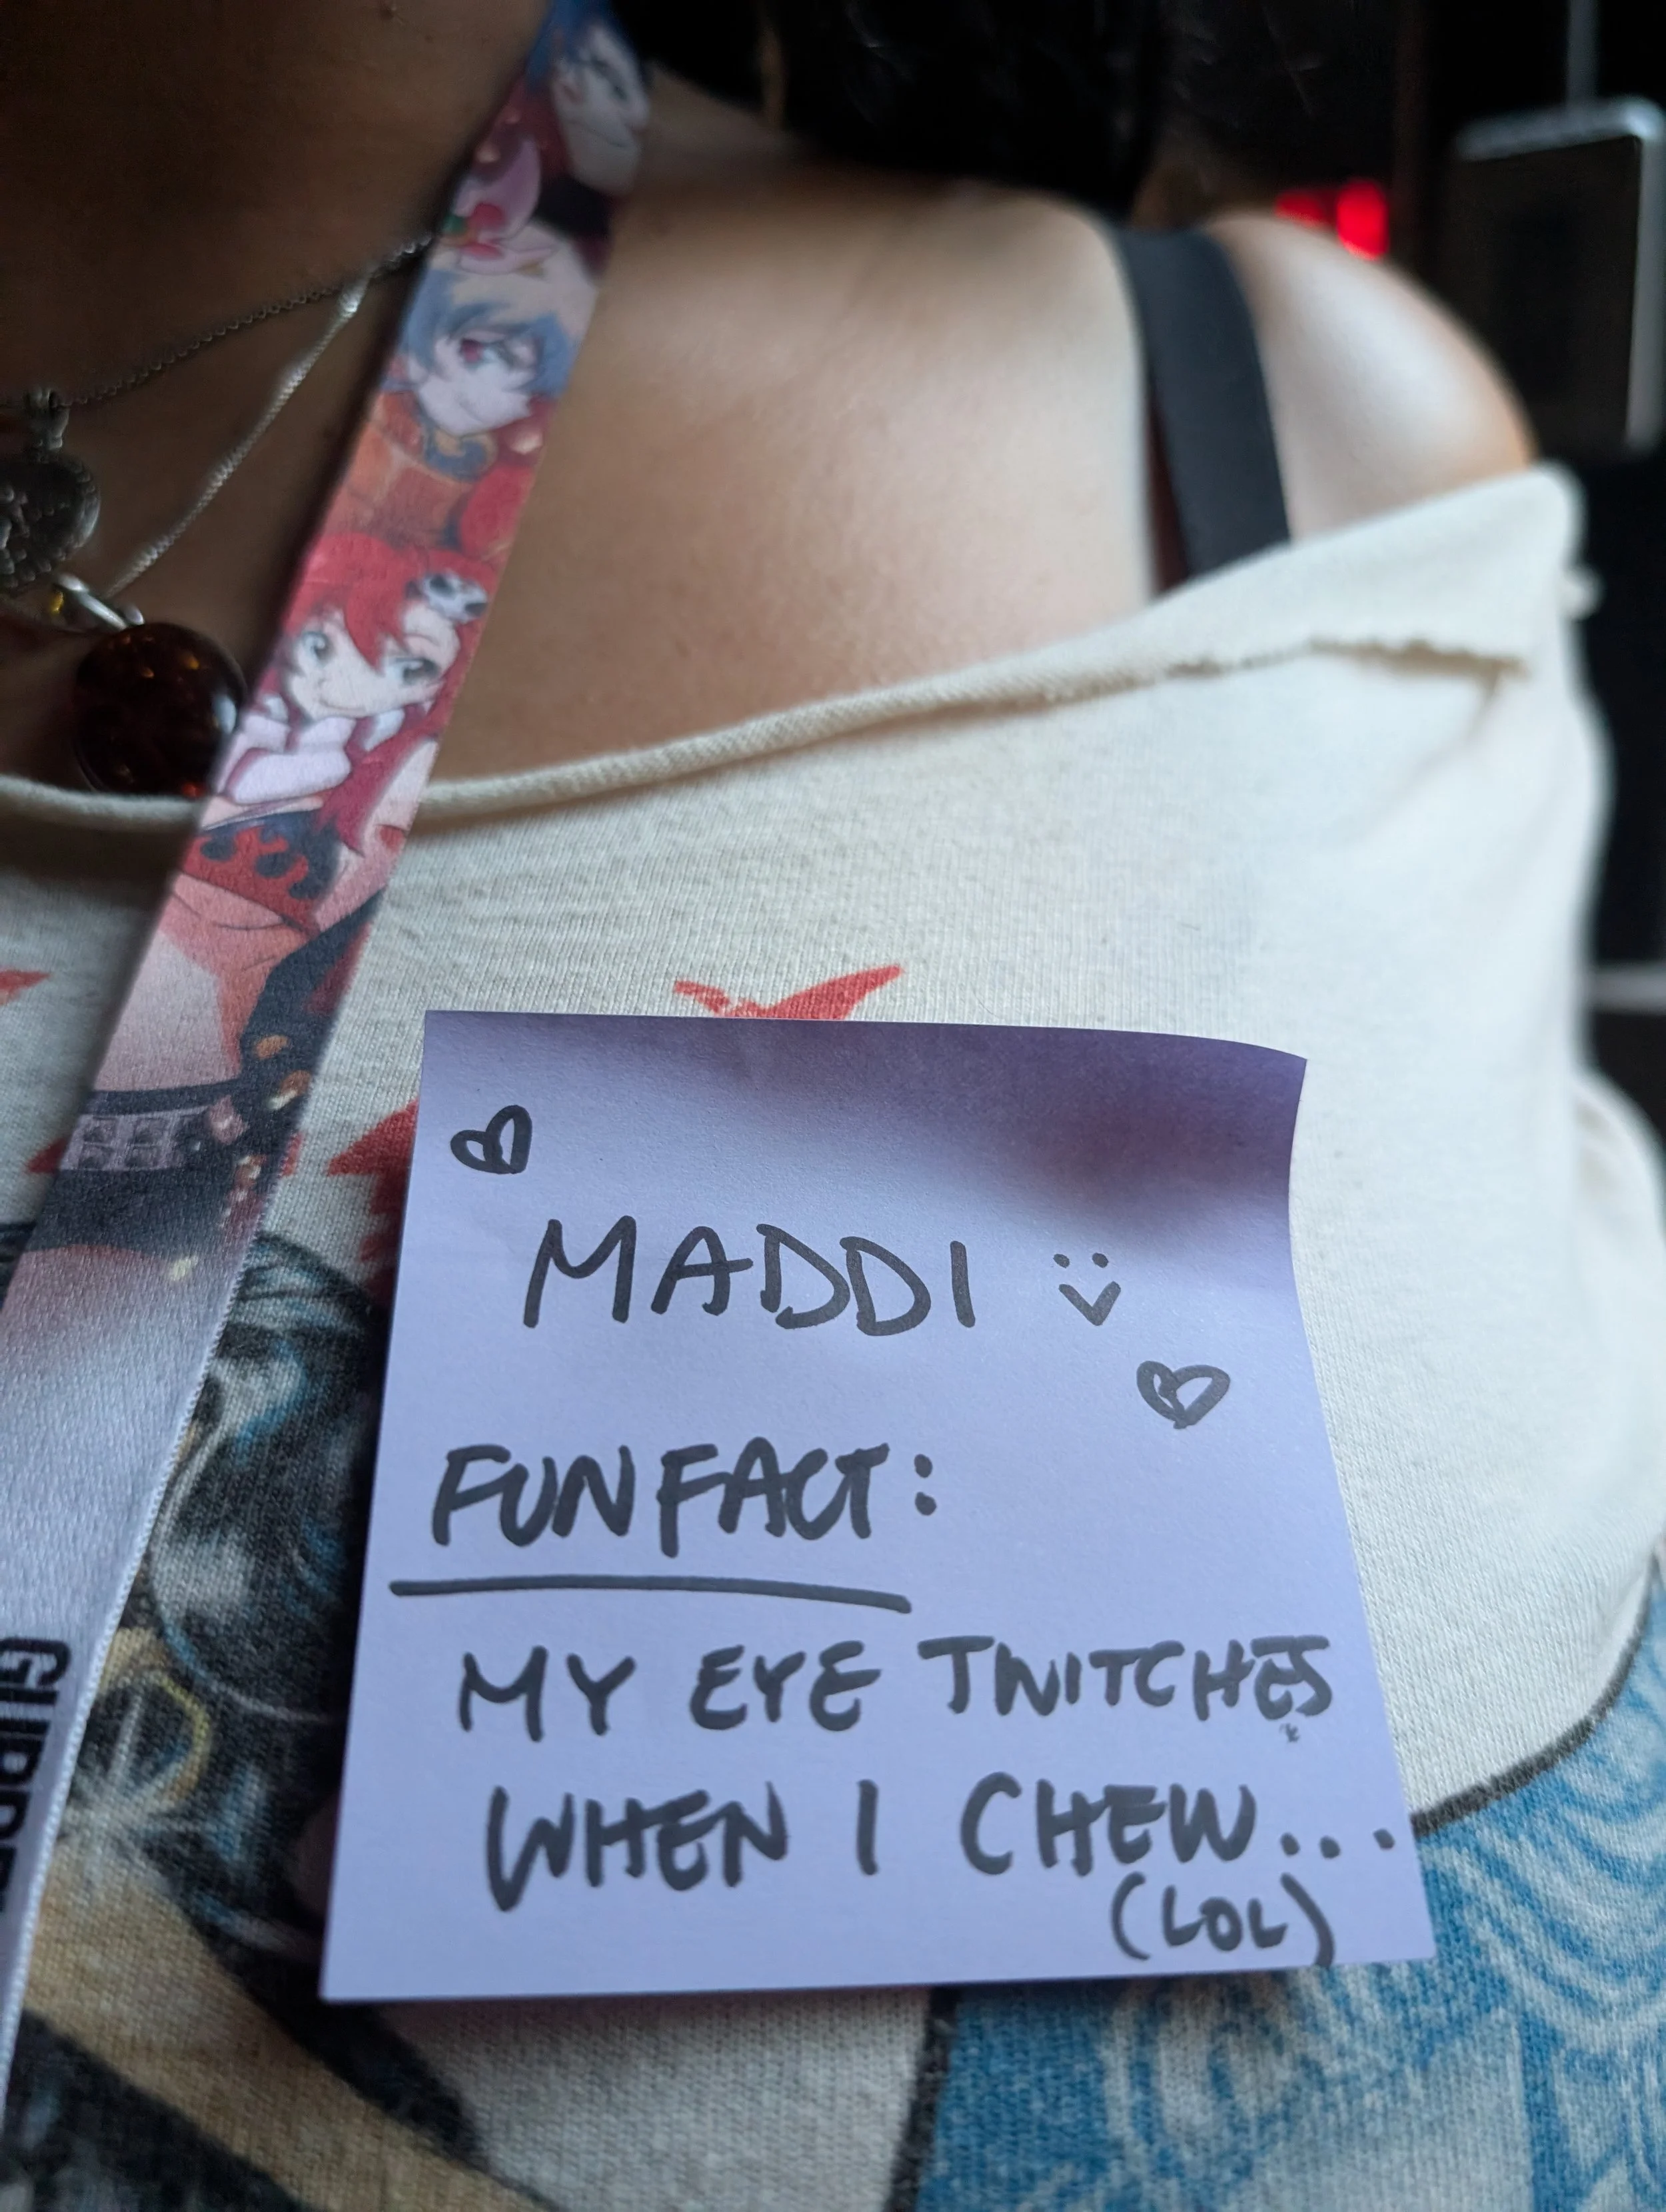 MADDI
FUN FACT:
MY EYE TWITCHES
WHEN I CHEW...
(LOL)